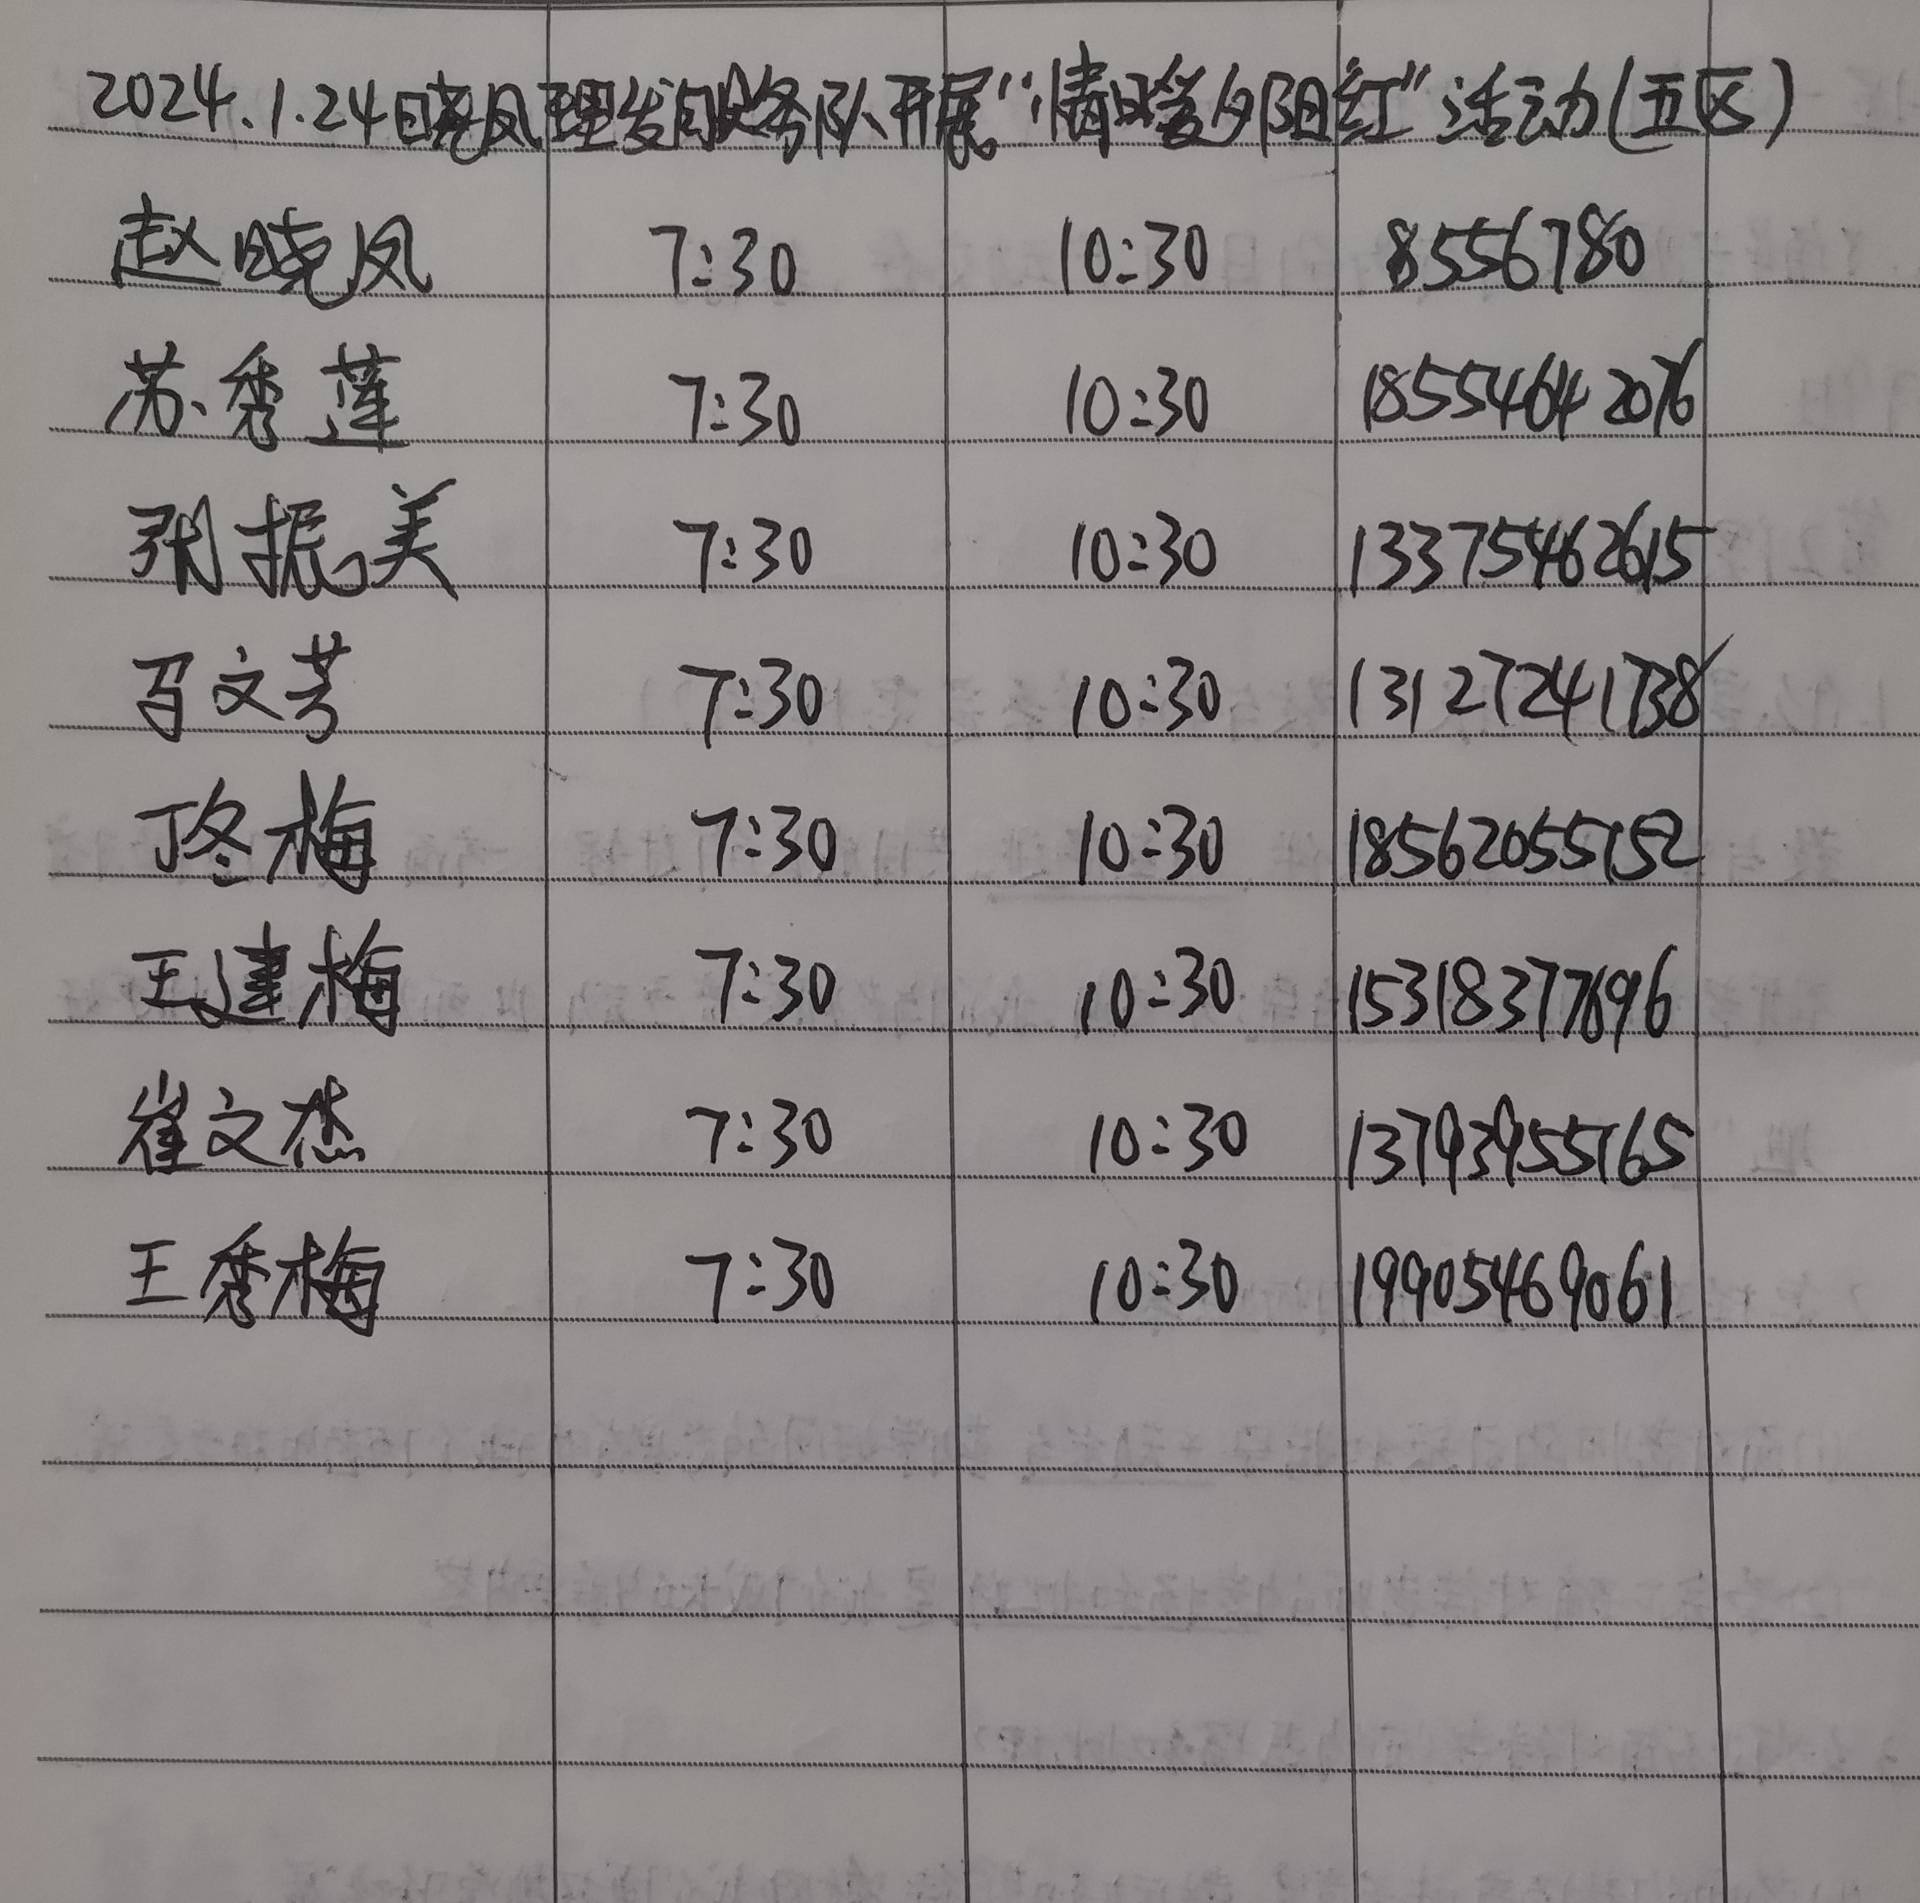 2024.1.24晓凤理发服务队开展“情暖夕阳红”活动(五区)
赵晓凤 7:30 10:30 8556780
苏秀莲 7:30 10:30 18554642076
张振美 7:30 10:30 13375462615
召文芳 7:30 10:30 13127241738
丁冬梅 7:30 10:30 18562055152
王建梅 7:30 10:30 15318377696
崔文杰 7:30 10:30 13793955165
王秀梅 7:30 10:30 19905469061